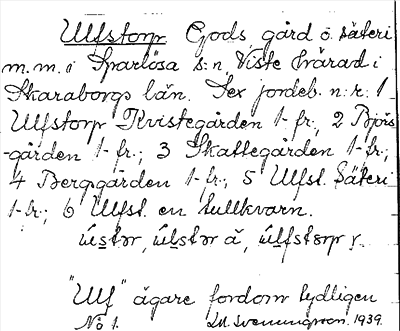 Ulfstorp. Gods gård o. säteri
m.m. i Sparlösa s:n Viste härad i
Skaraborgs län. Sex jordeb. n:r: 1
Ulfstorp Kvistegården 1-fr.; 2 Björs-
-gården 1-fr.; 3 Skattegården 1-fr.;
4 Bergsgården 1-fr.; 5 Ulfst. Säteri
1-fr.; 6 Ulfst. en tullkvarn.
ústər, úlstər å, úlfstɔrp
"Ulf" ägare fordom tydligen
No 1. Svenungsson. 1939.